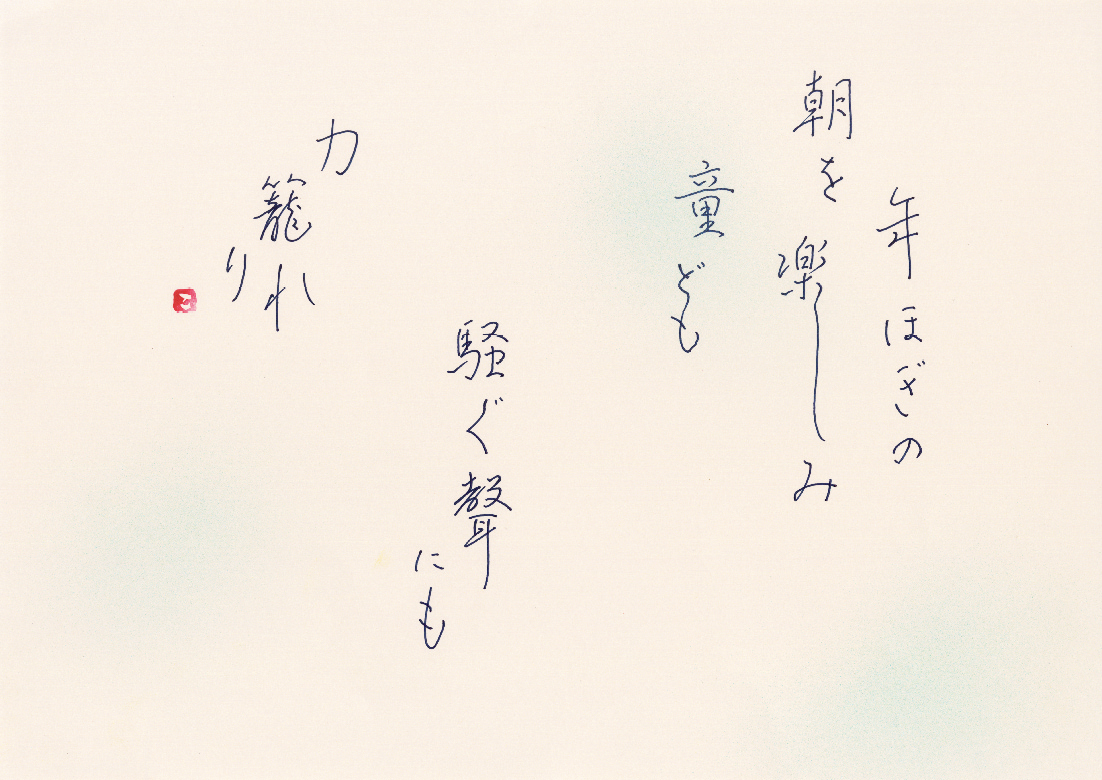 年ほぎの
朝を楽しみ
童ども
騒ぐ聲
にも
力
籠れ
り